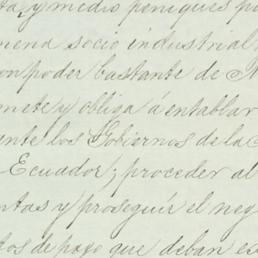 y medio peniques p
mena socio industrial
on poder bastante de
mete y obliga á entablar
ente los Gobiernos de la
Ecuador; proceder al
ntas y proseguir el neg
dos de pago que deban es